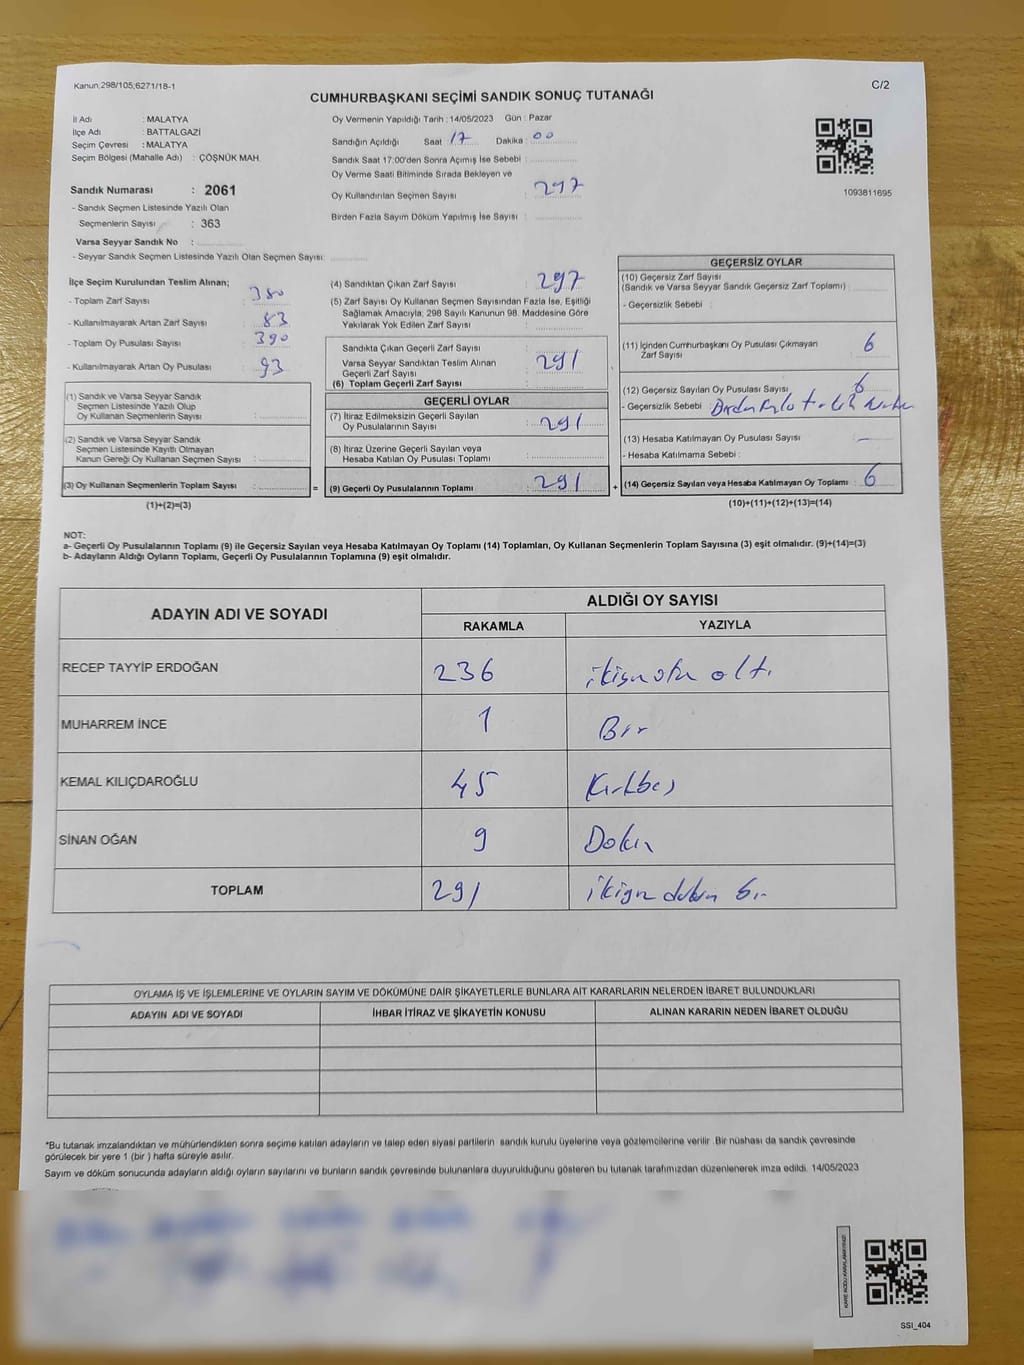 Kanun;298/105;6271/18-1
C/2
CUMHURBAŞKANI SEÇİMİ SANDIK SONUÇ TUTANAĞI
İl Adı : MALATYA
İlçe Adı : BATTALGAZİ
Seçim Çevresi : MALATYA
Seçim Bölgesi (Mahalle Adı) : ÇÖŞNÜK MAH.
Sandık Numarası : 2061
- Sandık Seçmen Listesinde Yazılı Olan
Seçmenlerin Sayısı : 363
Varsa Seyyar Sandık No :
- Seyyar Sandık Seçmen Listesinde Yazılı Olan Seçmen Sayısı:
Oy Vermenin Yapıldığı Tarih : 14/05/2023 Gün : Pazar
Sandığın Açıldığı Saat : 17 Dakika : 00
Sandık Saat 17:00'den Sonra Açımış İse Sebebi :
Oy Verme Saati Bitiminde Sırada Bekleyen ve
Oy Kullandırılan Seçmen Sayısı : 297
Birden Fazla Sayım Döküm Yapılmış İse Sayısı :
1093811695
İlçe Seçim Kurulundan Teslim Alınan;
- Toplam Zarf Sayısı : 380
- Kullanılmayarak Artan Zarf Sayısı : 83
- Toplam Oy Pusulası Sayısı : 390
- Kullanılmayarak Artan Oy Pusulası : 93
(1) Sandık ve Varsa Seyyar Sandık
Seçmen Listesinde Yazılı Olup
Oy Kullanan Seçmenlerin Sayısı :
(2) Sandık ve Varsa Seyyar Sandık
Seçmen Listesinde Kayıtlı Olmayan
Kanun Gereği Oy Kullanan Seçmen Sayısı :
(3) Oy Kullanan Seçmenlerin Toplam Sayısı :
(1)+(2)=(3)
(4) Sandıktan Çıkan Zarf Sayısı : 297
(5) Zarf Sayısı Oy Kullanan Seçmen Sayısından Fazla İse, Eşitliği
Sağlamak Amacıyla, 298 Sayılı Kanunun 98. Maddesine Göre
Yakılarak Yok Edilen Zarf Sayısı :
Sandıkta Çıkan Geçerli Zarf Sayısı :
Varsa Seyyar Sandıktan Teslim Alınan
Geçerli Zarf Sayısı : 291
(6) Toplam Geçerli Zarf Sayısı :
GEÇERLİ OYLAR
(7) İtiraz Edilmeksizin Geçerli Sayılan
Oy Pusulalarının Sayısı : 291
(8) İtiraz Üzerine Geçerli Sayılan veya
Hesaba Katılan Oy Pusulası Toplamı :
= (9) Geçerli Oy Pusulalarının Toplamı : 291 +
GEÇERSİZ OYLAR
(10) Geçersiz Zarf Sayısı
(Sandık ve Varsa Seyyar Sandık Geçersiz Zarf Toplamı) :
- Geçersizlik Sebebi :
(11) İçinden Cumhurbaşkanı Oy Pusulası Çıkmayan
Zarf Sayısı : 6
(12) Geçersiz Sayılan Oy Pusulası Sayısı : 6
- Geçersizlik Sebebi :
(13) Hesaba Katılmayan Oy Pusulası Sayısı : -
- Hesaba Katılmama Sebebi :
(14) Geçersiz Sayılan veya Hesaba Katılmayan Oy Toplamı : 6
(10)+(11)+(12)+(13)=(14)
NOT:
a- Geçerli Oy Pusulalarının Toplamı (9) ile Geçersiz Sayılan veya Hesaba Katılmayan Oy Toplamı (14) Toplamları, Oy Kullanan Seçmenlerin Toplam Sayısına (3) eşit olmalıdır. (9)+(14)=(3)
b- Adayların Aldığı Oyların Toplamı, Geçerli Oy Pusulalarının Toplamına (9) eşit olmalıdır.
ADAYIN ADI VE SOYADI
ALDIĞI OY SAYISI
RAKAMLA YAZIYLA
RECEP TAYYİP ERDOĞAN 236 ikiyüzotuz altı
MUHARREM İNCE 1 Bir
KEMAL KILIÇDAROĞLU 45 Kırkbeş
SİNAN OĞAN 9 Dokuz
TOPLAM 291 ikiyüz doksan bir
OYLAMA İŞ VE İŞLEMLERİNE VE OYLARIN SAYIM VE DÖKÜMÜNE DAİR ŞİKAYETLERLE BUNLARA AİT KARARLARIN NELERDEN İBARET BULUNDUKLARI
ADAYIN ADI VE SOYADI İHBAR İTİRAZ VE ŞİKAYETİN KONUSU ALINAN KARARIN NEDEN İBARET OLDUĞU
*Bu tutanak imzalandıktan ve mühürlendikten sonra seçime katılan adayların ve talep eden siyasi partilerin sandık kurulu üyelerine veya gözlemcilerine verilir. Bir nüshası da sandık çevresinde
görülecek bir yere 1 (bir ) hafta süreyle asılır.
Sayım ve döküm sonucunda adayların aldığı oyların sayılarını ve bunların sandık çevresinde bulunanlara duyurulduğunu gösteren bu tutanak tarafımızdan düzenlenerek imza edildi. 14/05/2023
KARE KODU KARALAMAYINIZ!
SSI_404